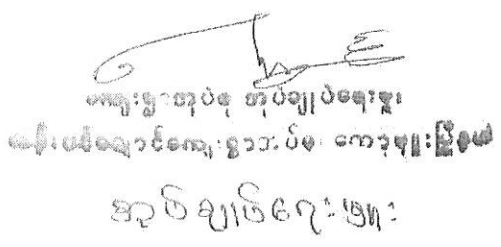 ကျေးရွာအုပ်စု အုပ်ချုပ်ရေးမှူး
ကျေးရွာအုပ်စု ကော့မှူးမြို့နယ်
အုပ်ချုပ်ရေးမှူး